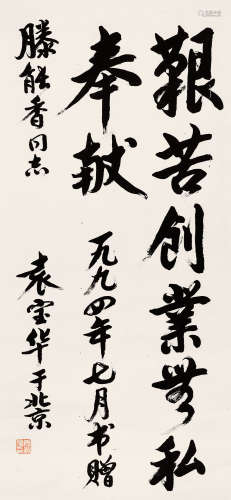 艱苦創業無私
奉献
一九九四年七月书贈
滕能香同志
袁宝华于北京